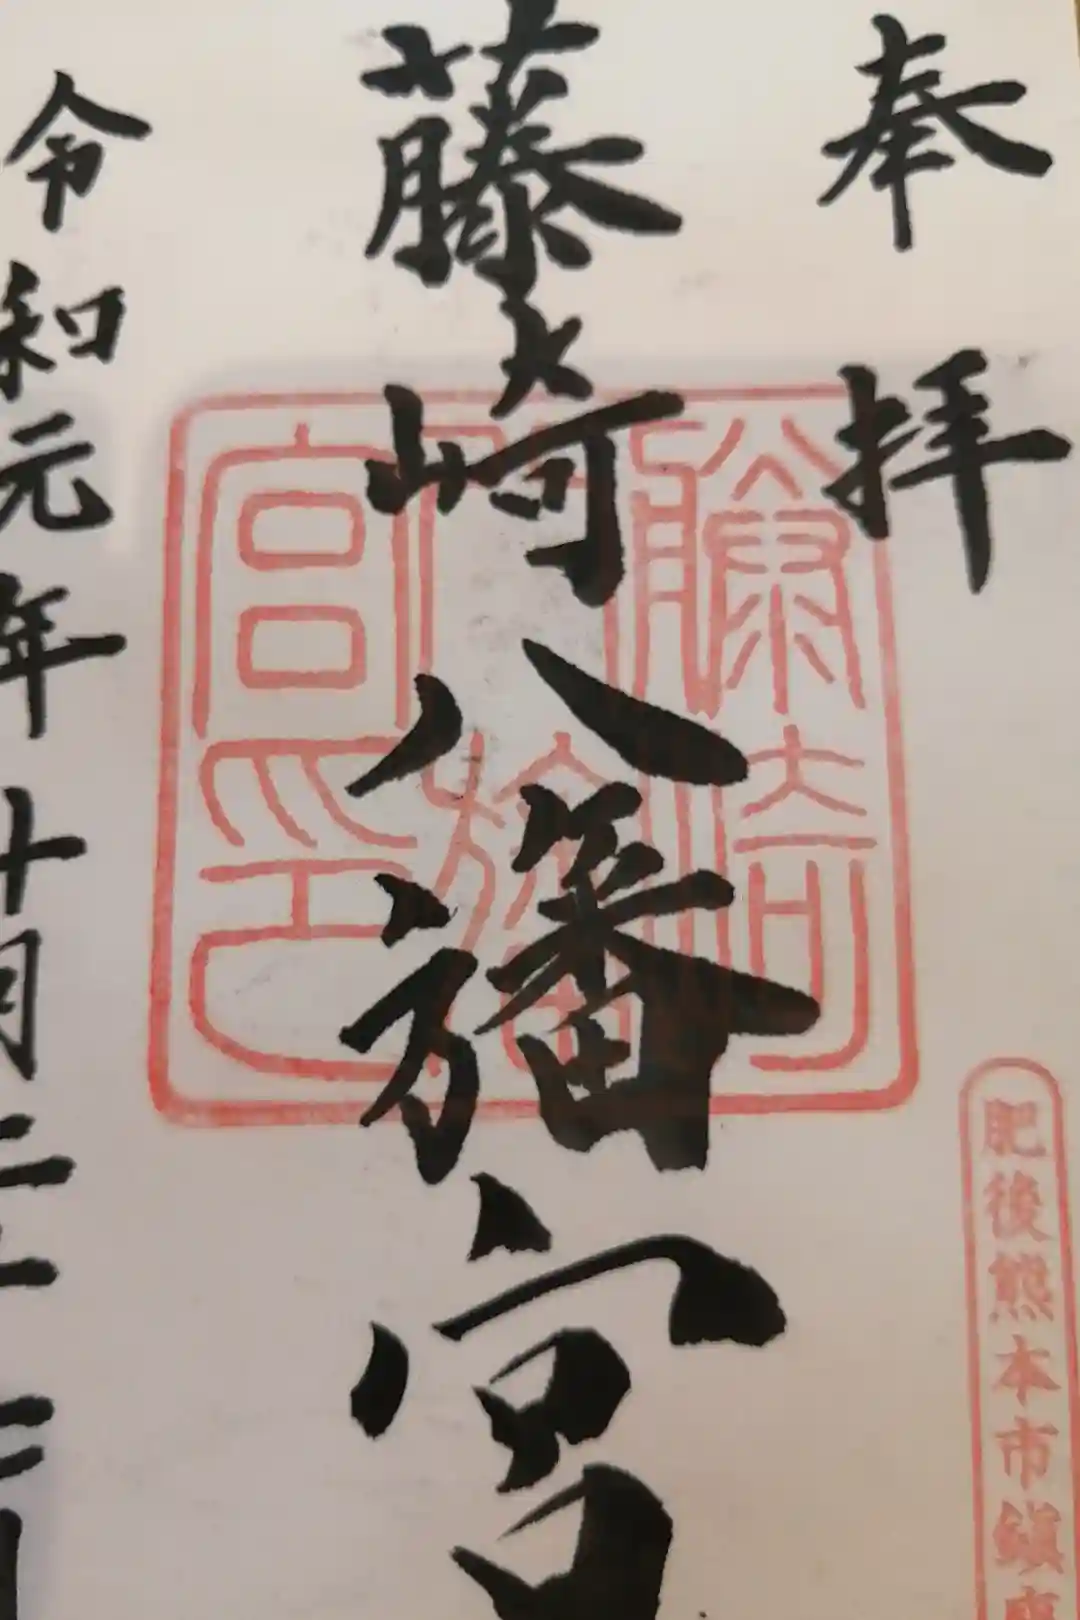 奉拝
肥後熊本市鎮座
藤崎八旛宮
藤崎
八旛
宮印
令和元年十月二十二日